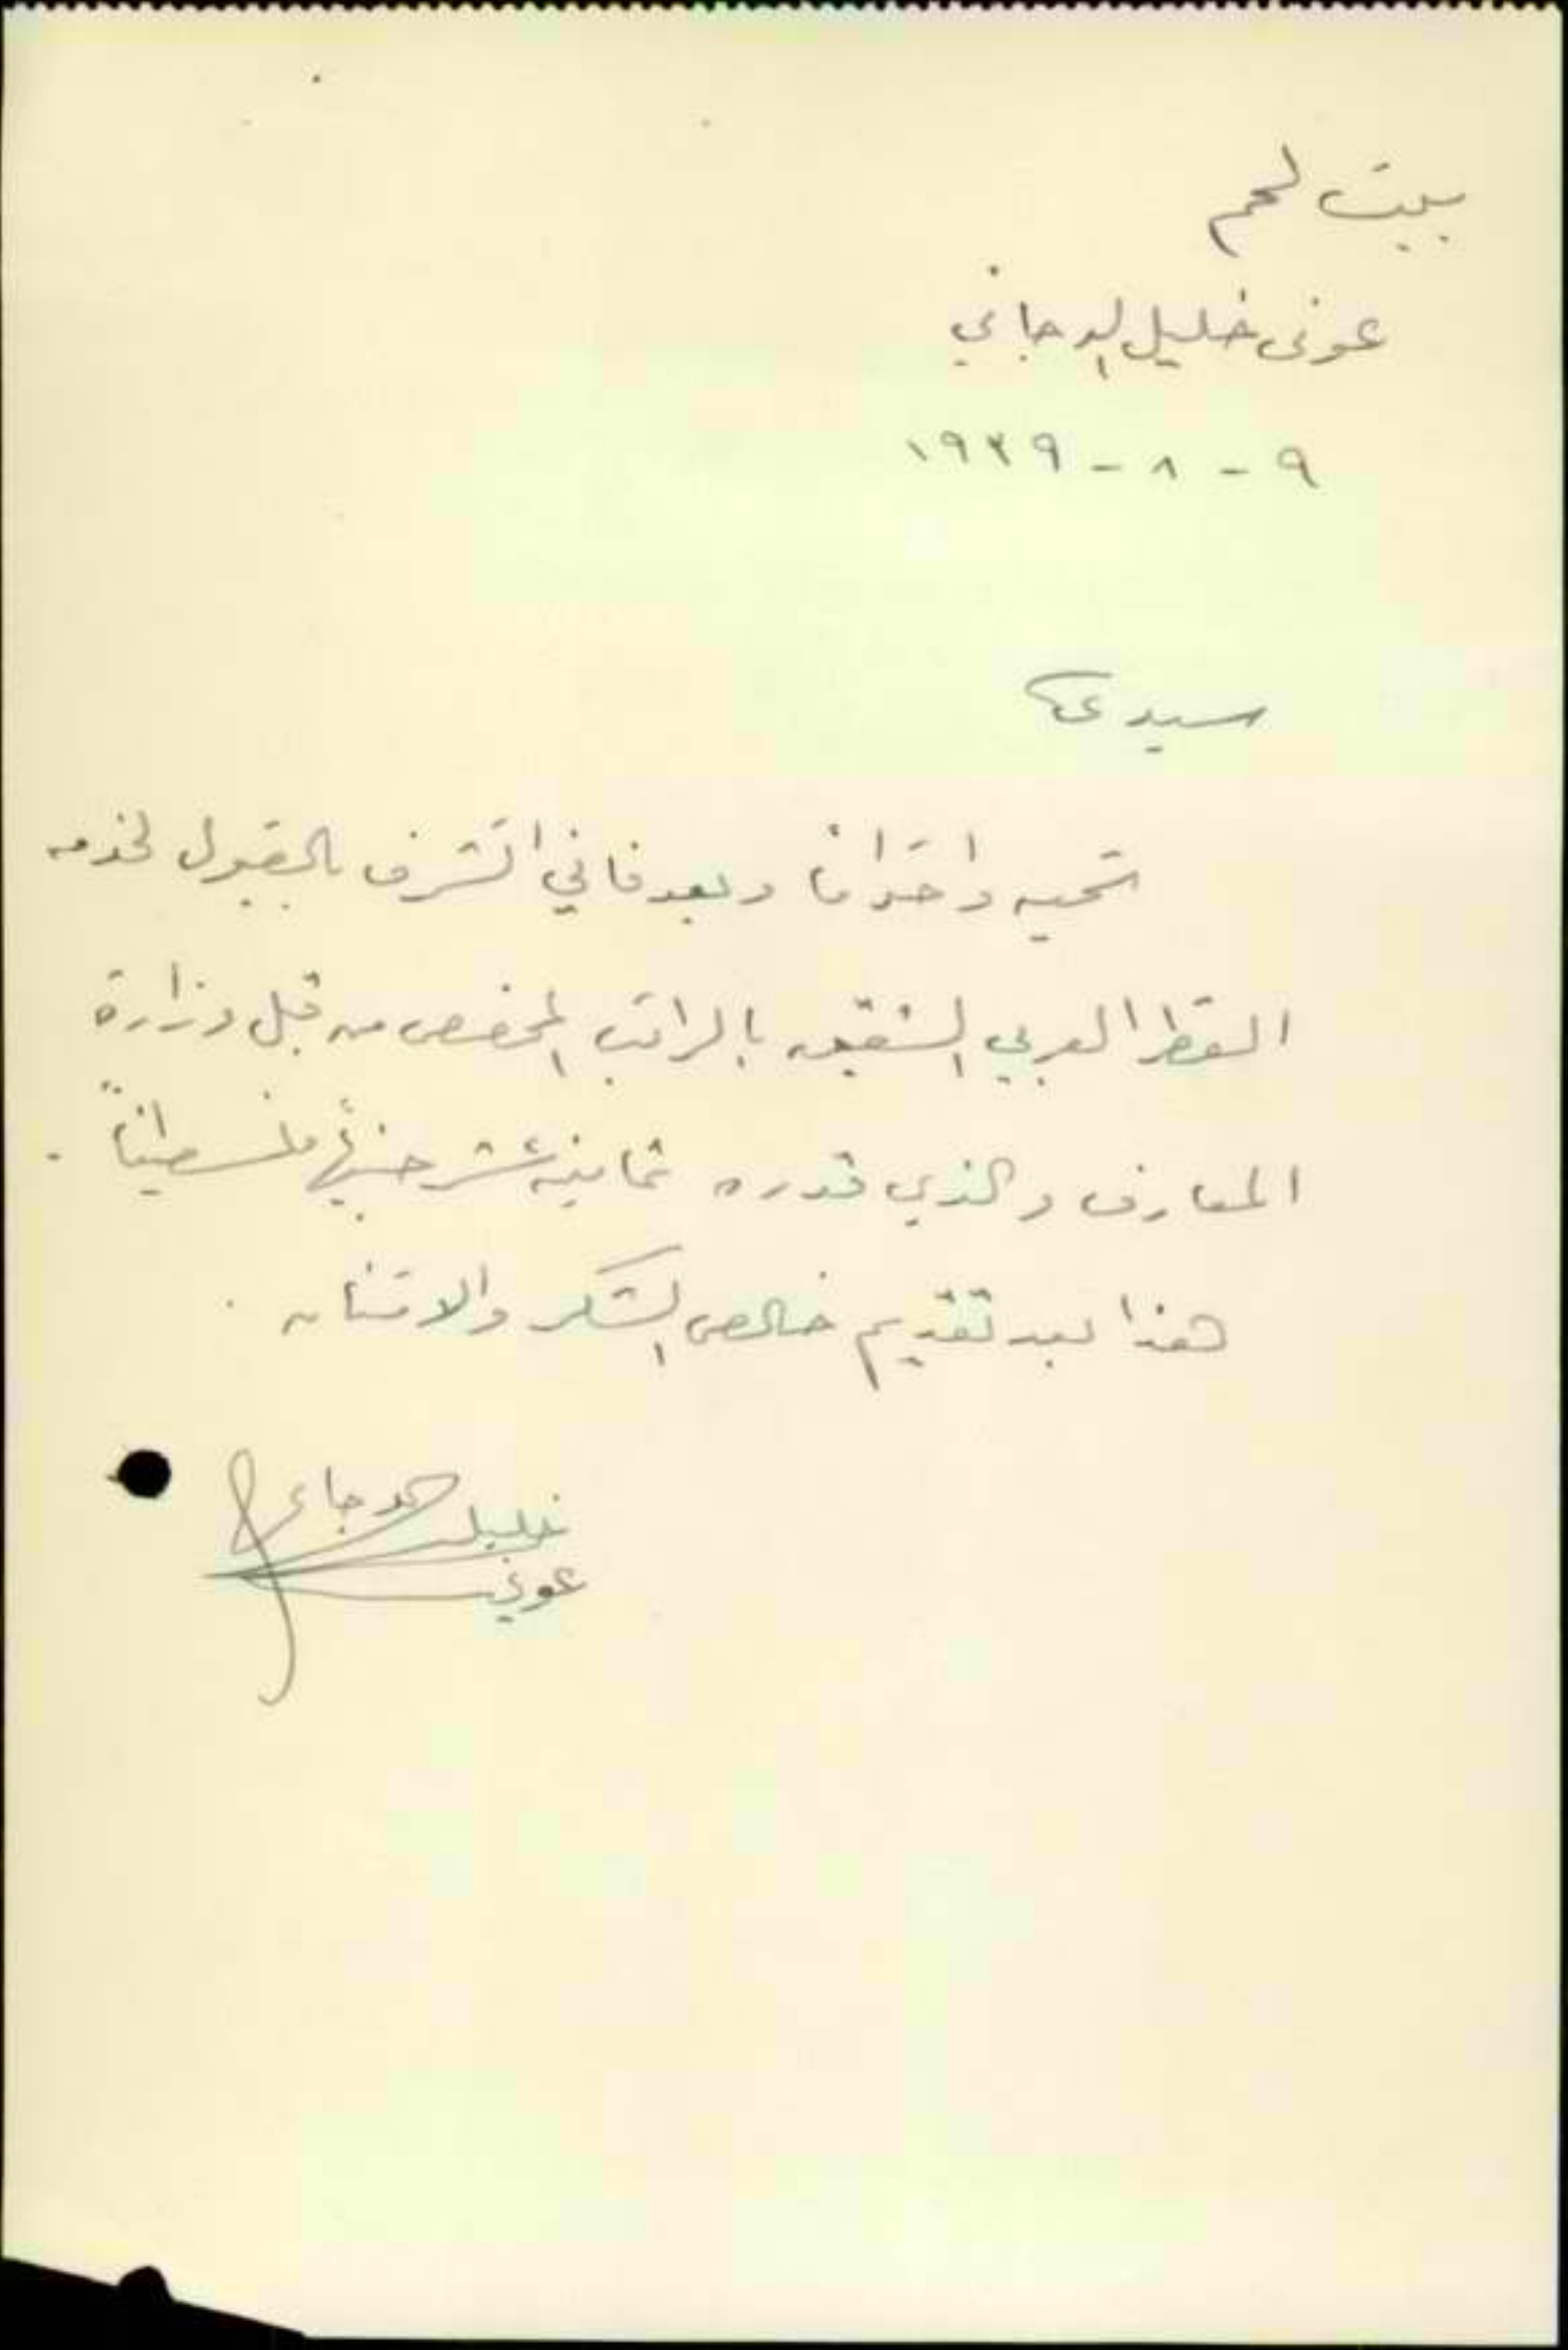 بيت لحم
عوني خليل الدجاني
٩ - ٨ - ١٩٣٩
سيدي
تحيه واحتراما وبعد فاني اتشرف بالقبول لخدمه
القطر العربي الشقيق بالراتب المخصص من قبل وزارة
المعارف والذي قدره ثمانية عشر جنيهاً فلسطينياً .
هذا بعد تقديم خالص الشكر والامتنان .
خليل الدجاني
عوني